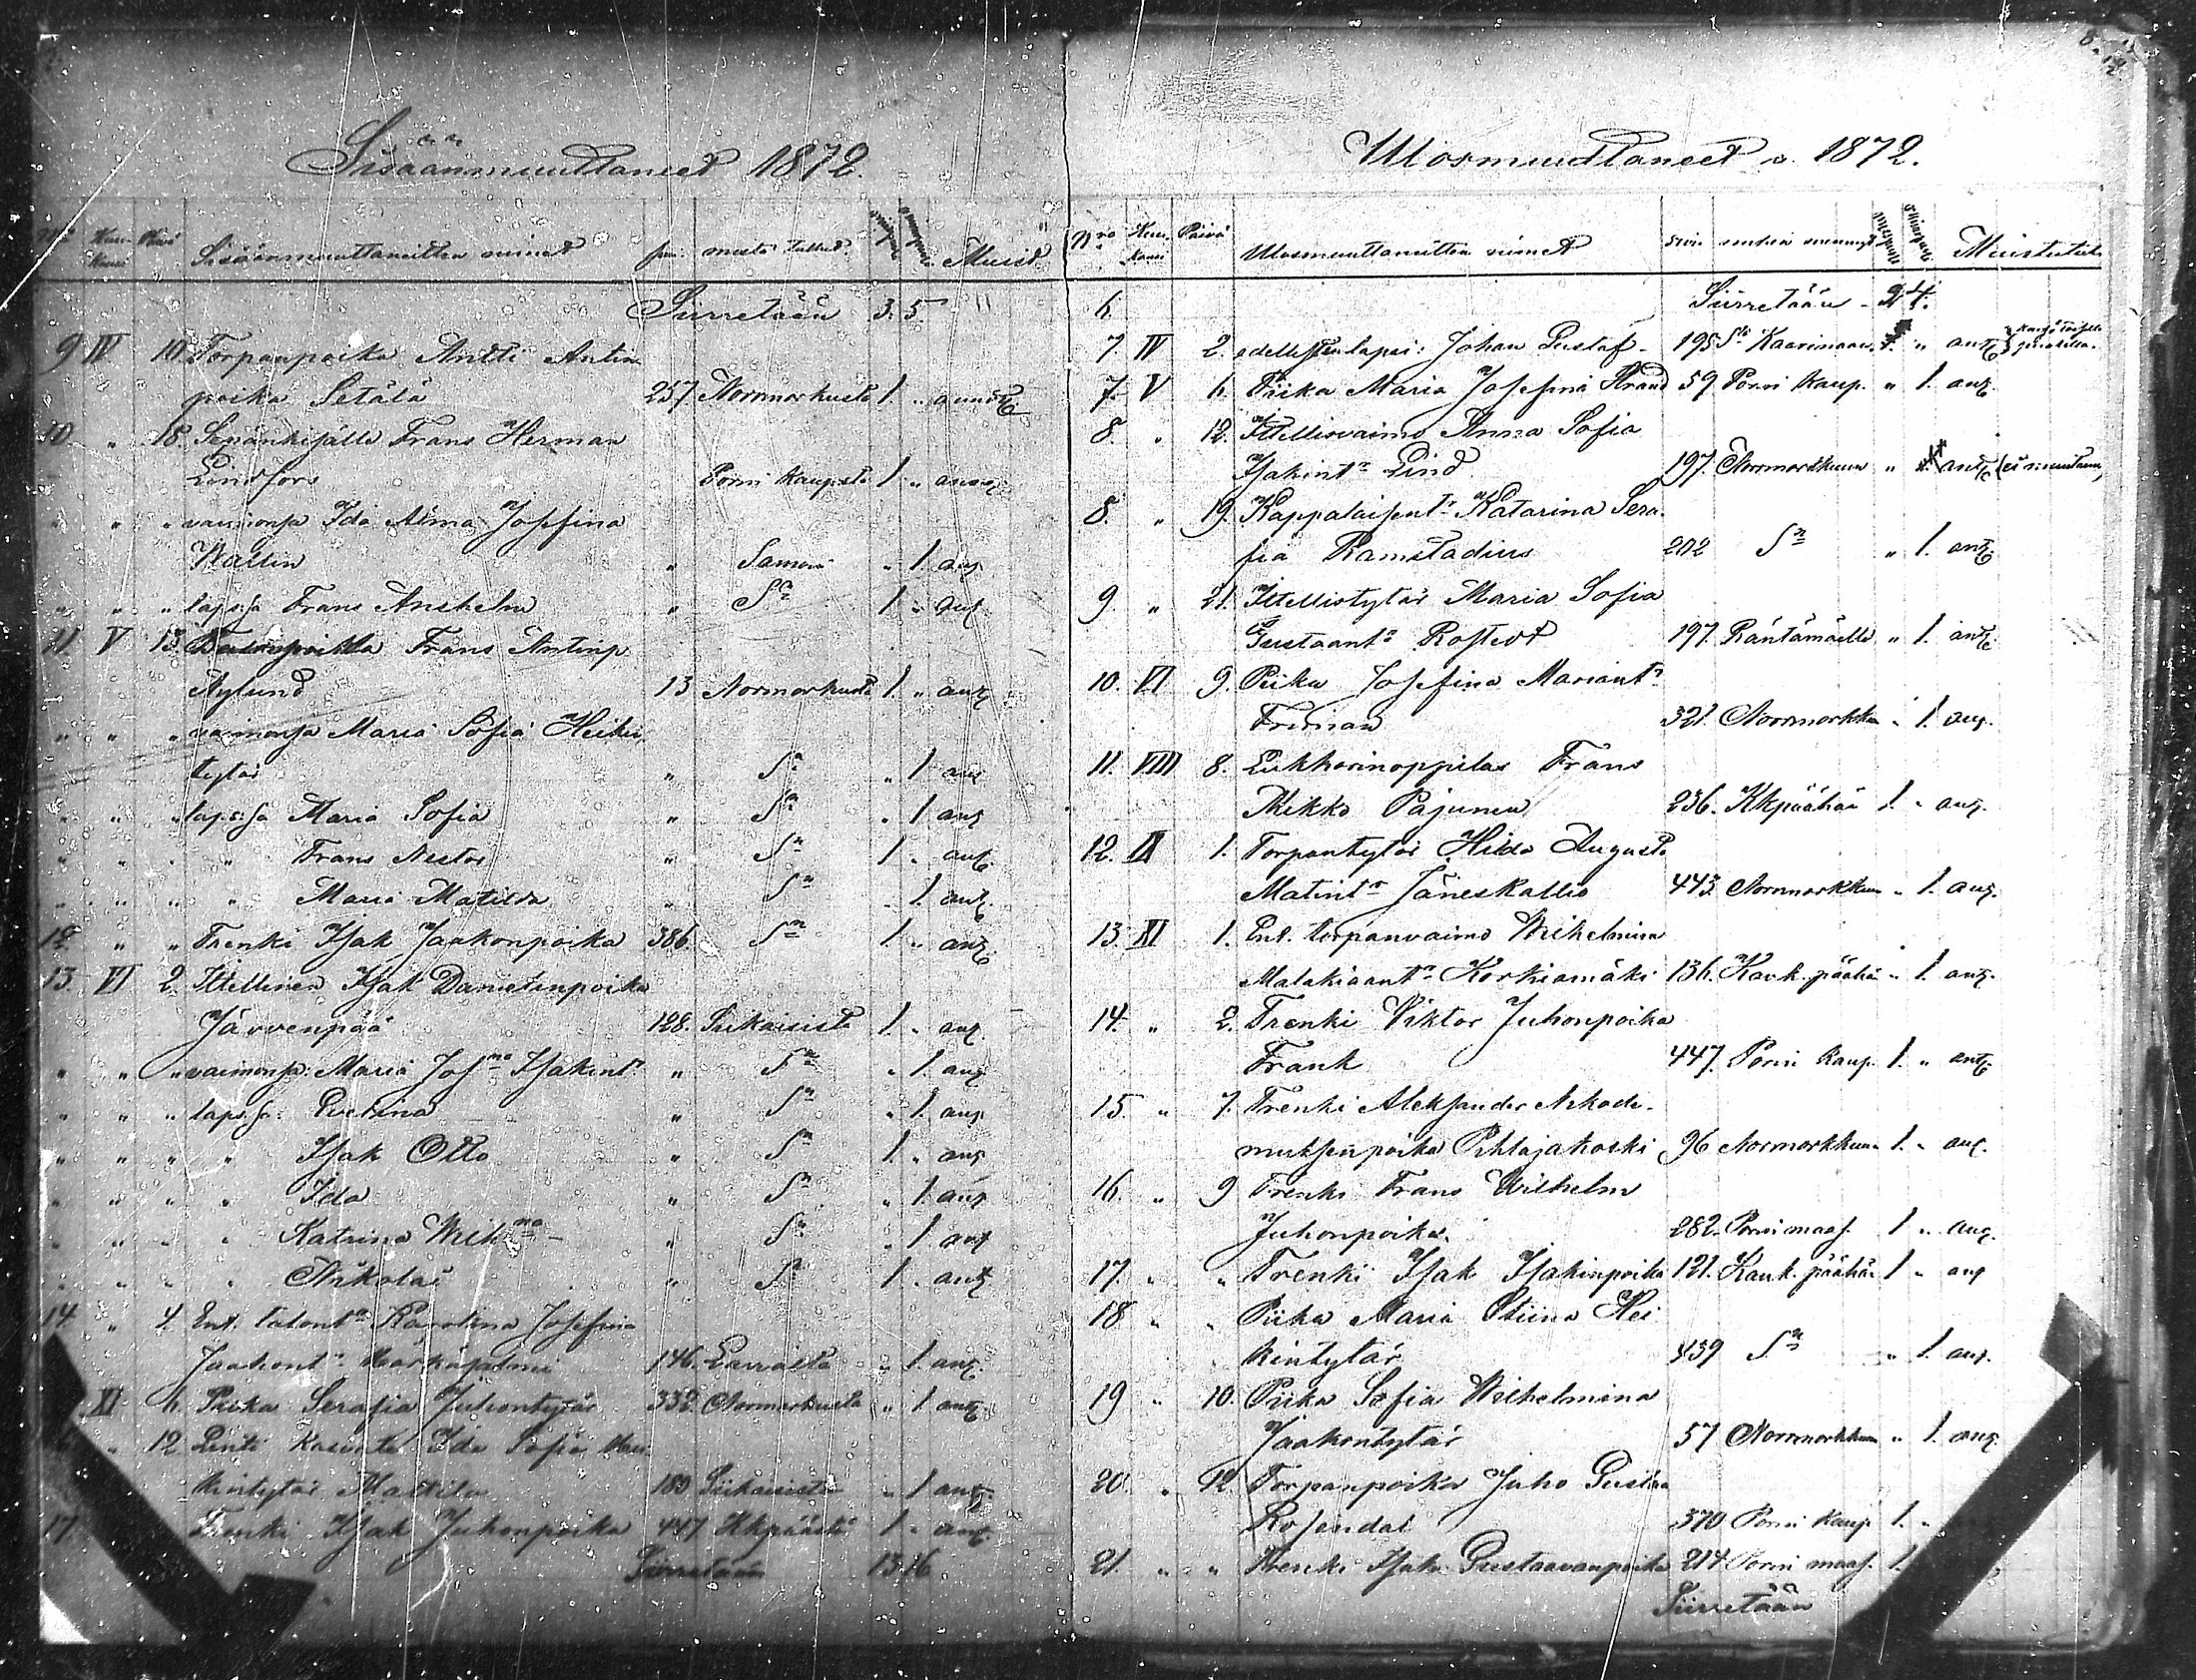 Sisäänmuuttaneet 1872.
Sisäänmuuttaneitten nimet mistä tulleet Muist.
Siirretään 3. 5.
9 IV 10. Torpanpoika Antti Antin
poika Setälä 257 Normarkusta 1 "
10 " 18. Sepänkisälli Frans Herman
Lindfors Porin kaupista 1 "
" " " vaimonsa Ida Alma Josefina
Wallin " Samoin " 1
" " " lapssa Frans Anshelm " Sn 1 "
11 V 13. Frans Antinp
Nylund 13 Normarkusta 1. "
" " " vaimonsa Maria Sofia Heikin
tytär " Sn " 1
" " " lapssa Maria Sofia " Sn " 1
" " " " Frans Nestor " Sn 1 "
" " " " Maria Matilda " Sn " 1
12 " " Trenki Isak Jaakonpoika 386. Sn 1. "
13. VI 2. Ittellinen Isak Danielinpoika
Järvenpää 128. Siikaisista 1. "
" " " vaimonsa: Maria Josna Isakint. " Sn " 1.
" " " lapssa: Evelina " Sn " 1.
" " " " Isak Otto " Sn 1. "
" " " " Ida " Sn " 1.
" " " " Katrina Wilhna " Sn " 1.
" " " " Nikolai " Sn 1. "
14 " 4. Ent. talontr Karolina Josefina
Jaakontr 146. Lavialta " 1.
XI 6. Piika Serafia Juhontytär 332. Normarkusta " 1
" 12 Ida Sofia Hei
kintytär Mattila 189 Siikaisista " 1
17. Trenki Isak Juhonpoika 447 Kkpäästä 1 "
Siirretään 13 16
Ulosmuuttaneet v. 1872.
Nro Kuu-kausi Päivä Ulosmuuttaneitten nimet Sivu mihin mennyt Muistutuk.
6. Siirretään - 2 4.
7. IV 2. edellisen lapsi: Johan Gustaf - 195 St Kaarinaan "
7. V 6. Piika Maria Josefina Strand 59. Porin kaup. " 1.
8. " 12. Ittellisvaimo Anna Sofia
Isakintr Lind. 197. Normarkkuun "
8. " 19. Kappalaisentr Katarina Sera-
fia Ramstadius 202 Sn " 1.
9. " 21. Ittellistytär Maria Sofia
Gustaantr Rostedt 197. Räntämäelle " 1.
10. VI 9. Piika Josefina Mariantr
Friman 321. Normarkku " 1.
11. VIII 8. Lukkarinoppilas Frans
Mikko Pajunen 236. Kkpäähän 1. "
12. IX 1. Torpantytär Hilda Augusta
Matintr Jäneskallio 443. Normarkkuun " 1.
13. XI 1. Ent. torpanvaimo Wilhelmina
Malakiaantr Korkiamäki 136. Kank.päähän " 1.
14. " 2. Trenki Viktor Juhonpoika
Frank 447. Porin kaup. 1. "
15. " 7. Trenki Aleksander Nikode-
muksenpoika Pihlajakoski 96 Normarkkuun 1. "
16. " 9 Trenki Frans Wilhelm
Juhonpoika. 282. Porin maas. 1 "
17. " " Trenki Isak Isakinpoika 121. Kank.päähän 1 "
18 " " Piika Maria Stiina Hei
kintytär 439 Sn " 1.
19 " 10. Piika Sofia Wilhelmina
Jaakontytär 57 Normarkkuun " 1.
20. " 12. Torpanpoika Juho Gustaa
Rosendal 370 Porin kaup. 1. "
21. " " Trenki Isak Gustaavanpoika 214 Porin maas. 1.
Siirretään